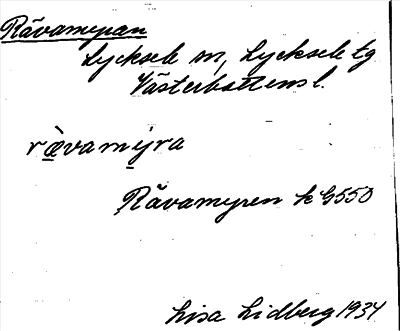 Rävamyran
Lycksele sn, Lycksele tg
Västerbottens l.
rävamyra
Rävamyren k G550
Lisa Lidberg 1934